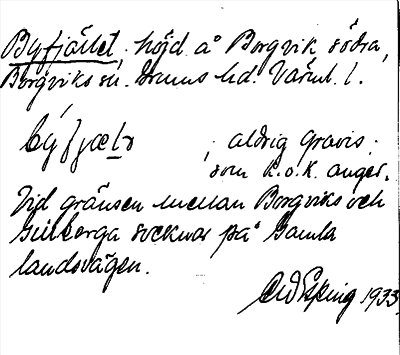 Byfjället, höjd å Borgvik södra,
Borgviks sn. Grums hd. Värml. l.
býfjæLɜ ; aldrig gravis.
som R.o.K. anger.
Vid gränsen mellan Borgviks och
Gillberga socknar på Gamla
landsvägen.
Esping 1933.